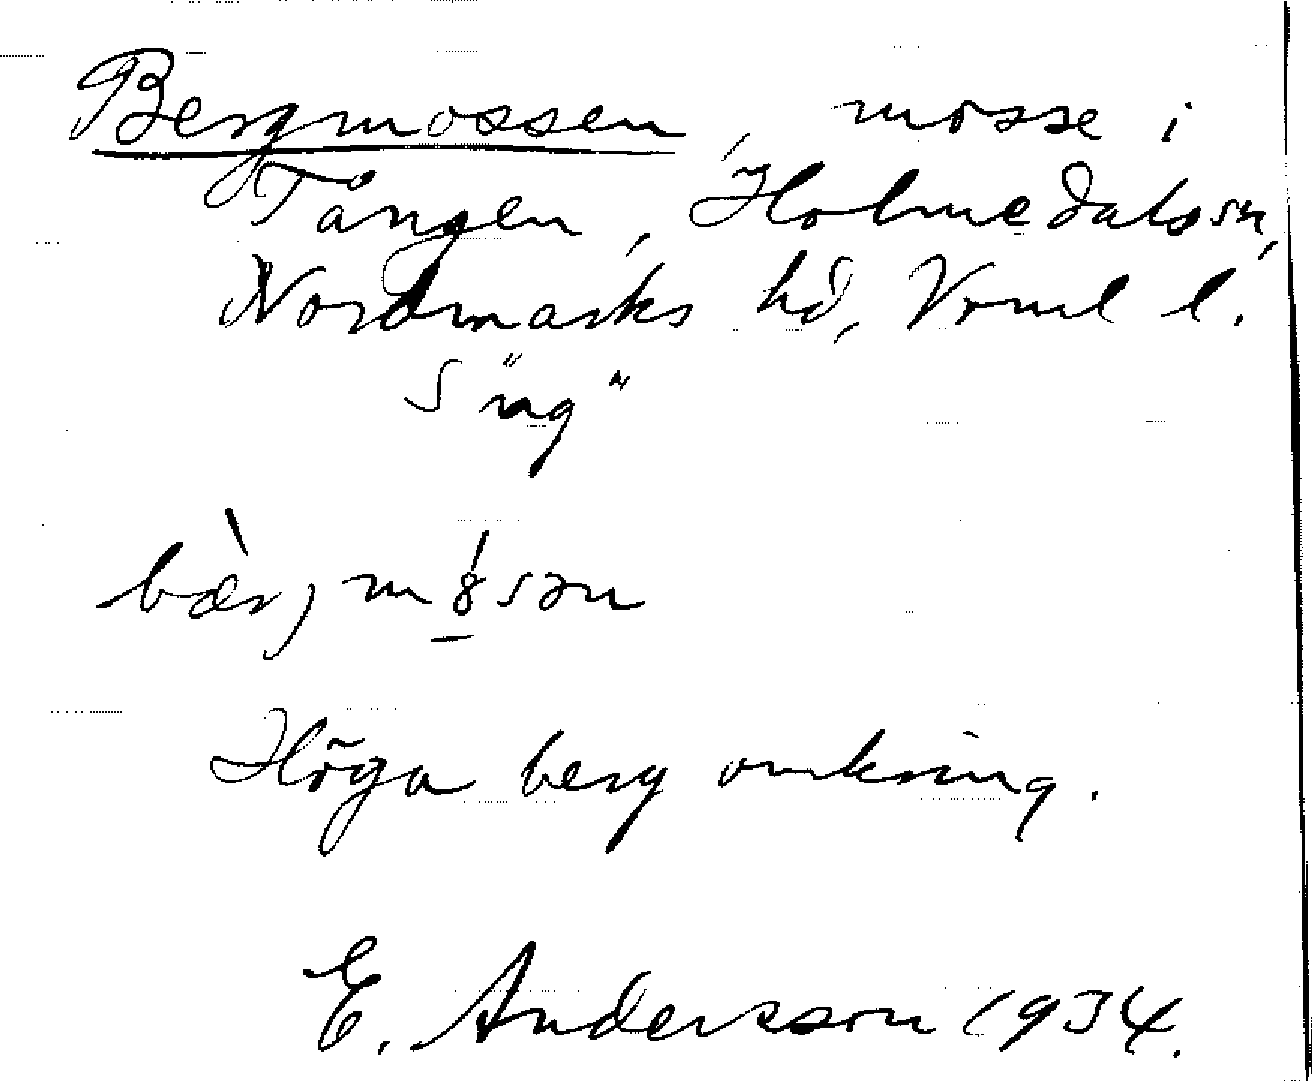 Bergmossen, mosse i
Tången, Holmedals sn,
Nordmarks hd, Vrml l.
bær,
Höga berg omkring.
E. Andersson 1934.